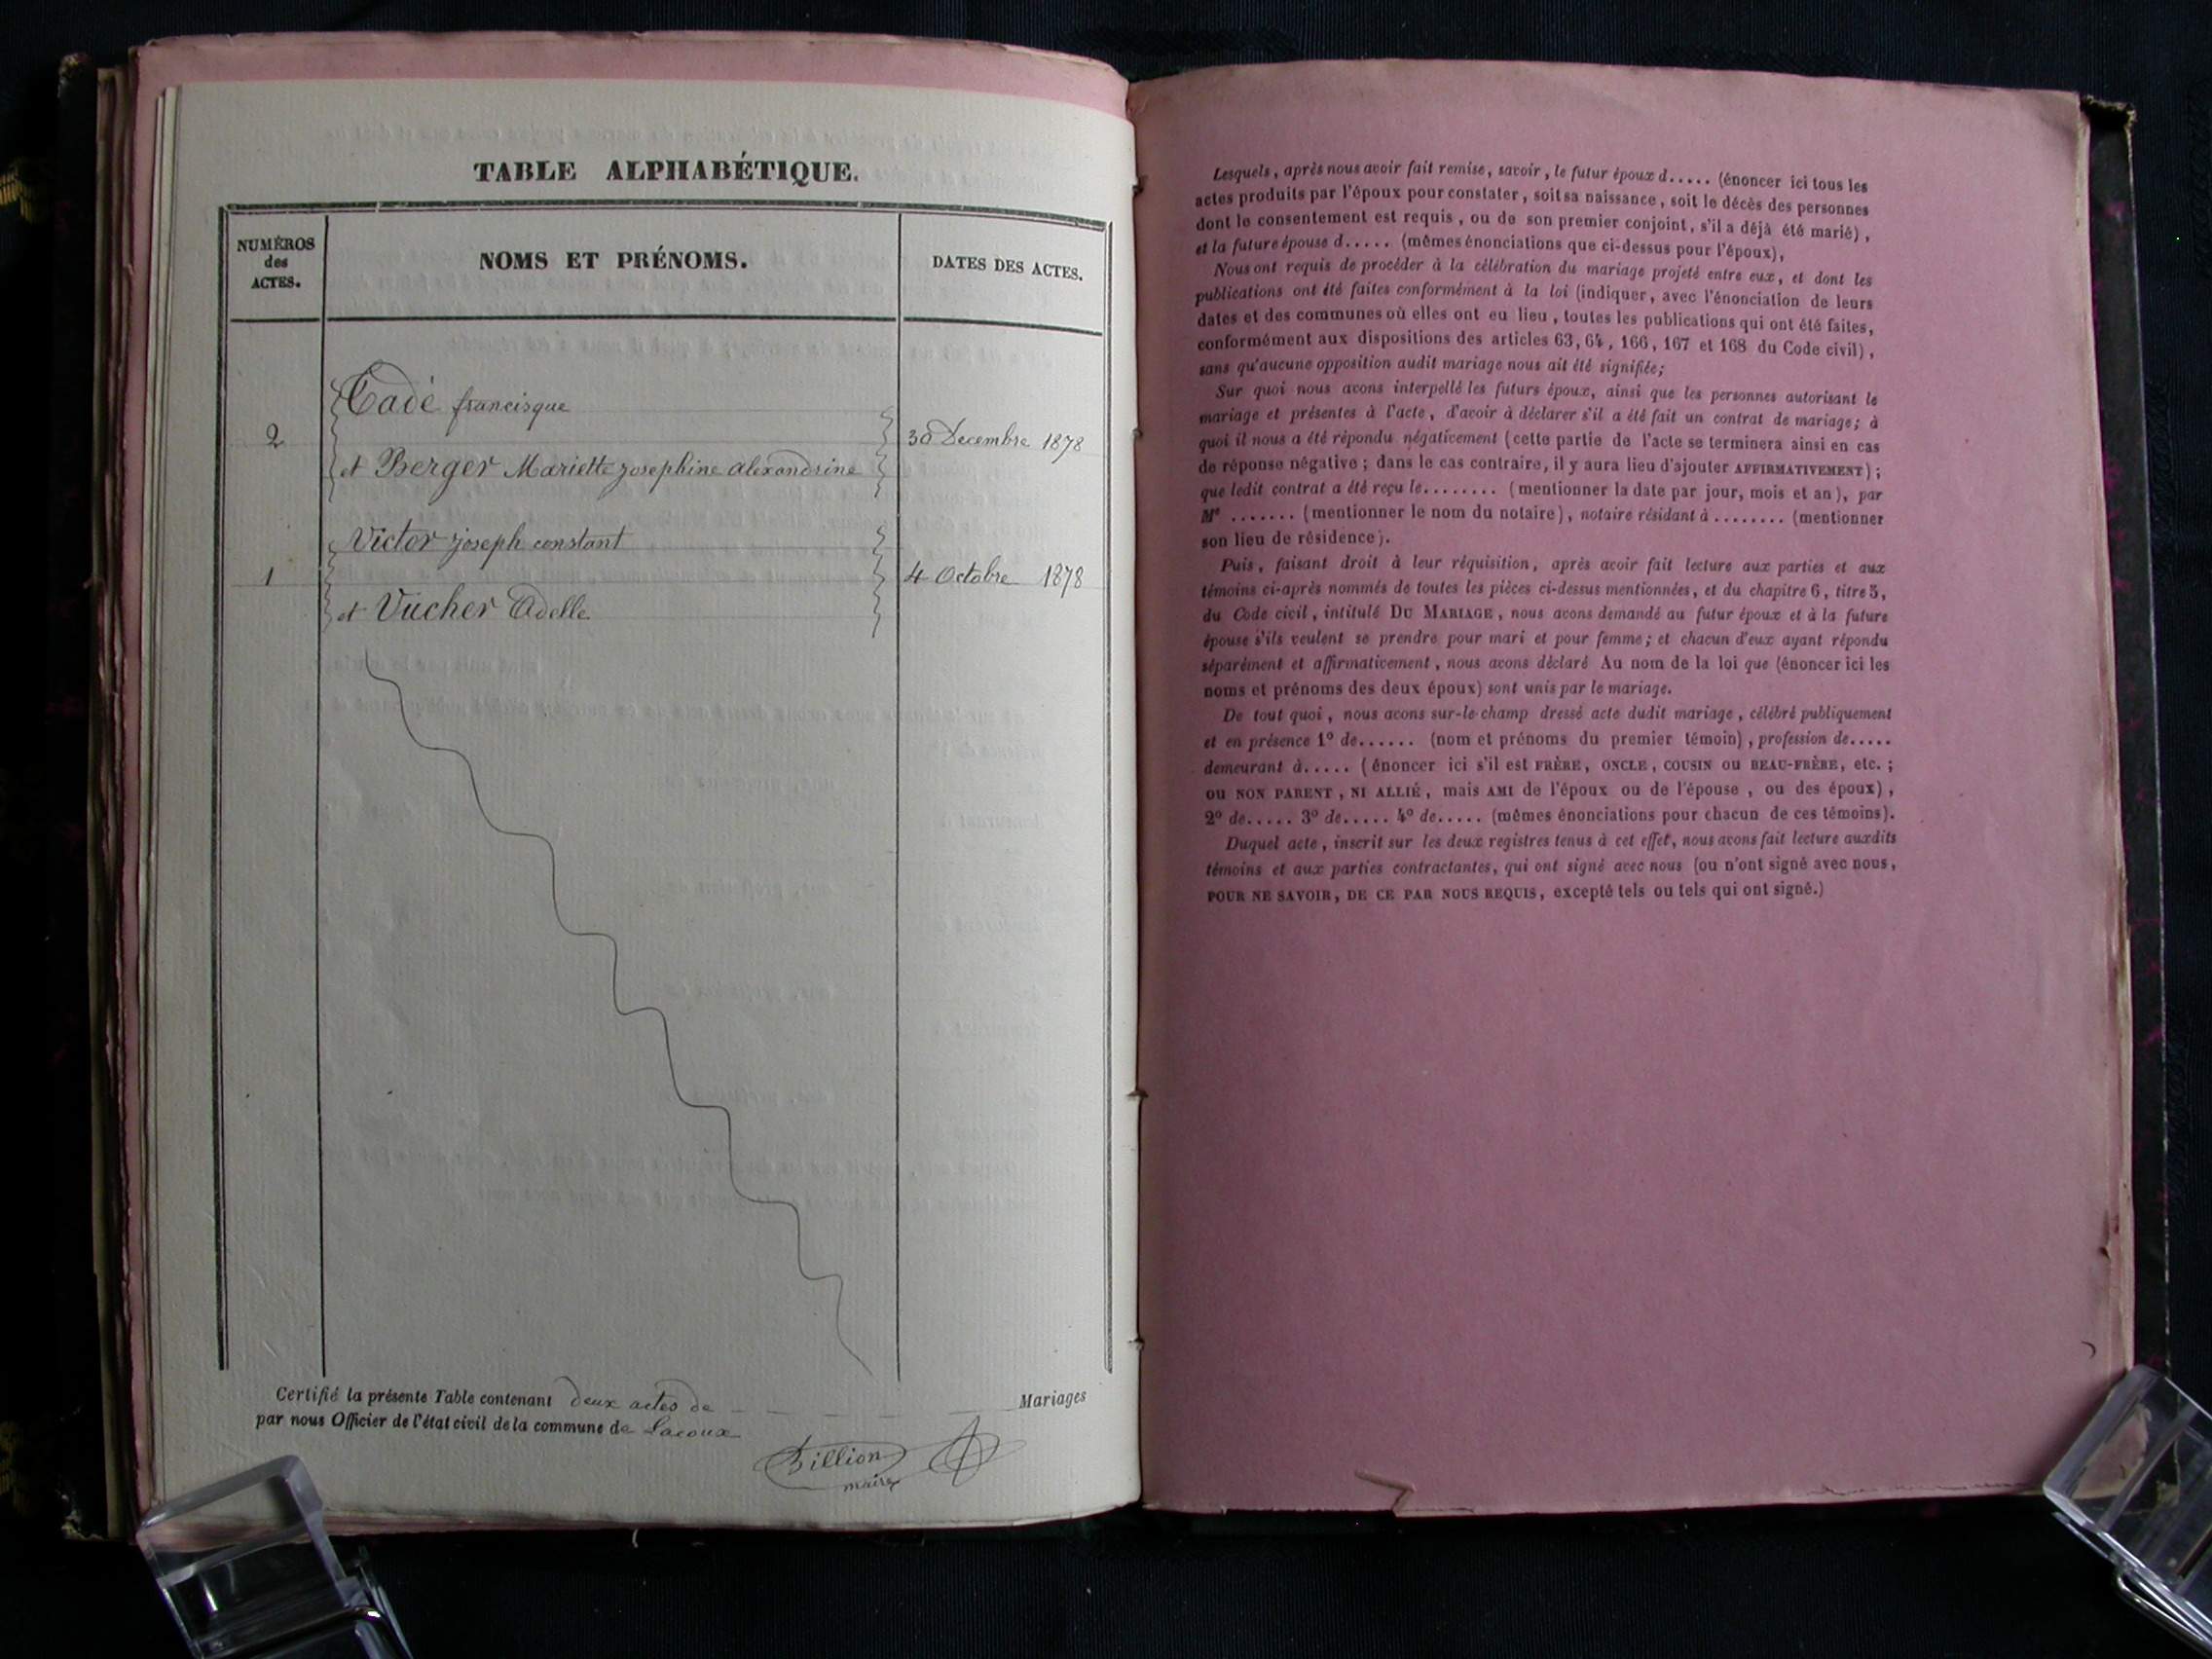 TABLE ALPHABÉTIQUE.
NUMÉROS
des
ACTES.
NOMS ET PRÉNOMS.
DATES DES ACTES.
Cadé francisque
2
30 Decembre 1878
et Berger Mariette josephine alexandrine
Victor joseph constant
1
4 Octobre 1878
et Vücher Adelle
Certifié la présente Table contenant deux actes de Mariages
par nous Officier de l'état civil de la commune de Lacoux
Billion
maire
Lesquels, après nous avoir fait remise, savoir, le futur époux d..... (énoncer ici tous les
actes produits par l'époux pour constater, soit sa naissance, soit le décès des personnes
dont le consentement est requis, ou de son premier conjoint, s'il a déjà été marié),
et la future épouse d..... (mêmes énonciations que ci-dessus pour l'époux),
Nous ont requis de procéder à la célébration du mariage projeté entre eux, et dont les
publications ont été faites conformément à la loi (indiquer, avec l'énonciation de leurs
dates et des communes où elles ont eu lieu, toutes les publications qui ont été faites,
conformément aux dispositions des articles 63, 64, 166, 167 et 168 du Code civil),
sans qu'aucune opposition audit mariage nous ait été signifiée;
Sur quoi nous avons interpellé les futurs époux, ainsi que les personnes autorisant le
mariage et présentes à l'acte, d'avoir à déclarer s'il a été fait un contrat de mariage; à
quoi il nous a été répondu négativement (cette partie de l'acte se terminera ainsi en cas
de réponse négative; dans le cas contraire, il y aura lieu d'ajouter AFFIRMATIVEMENT);
que ledit contrat a été reçu le........ (mentionner la date par jour, mois et an), par
Me ....... (mentionner le nom du notaire), notaire résidant à ........ (mentionner
son lieu de résidence).
Puis, faisant droit à leur réquisition, après avoir fait lecture aux parties et aux
témoins ci-après nommés de toutes les pièces ci-dessus mentionnées, et du chapitre 6, titre 5,
du Code civil, intitulé DU MARIAGE, nous avons demandé au futur époux et à la future
épouse s'ils veulent se prendre pour mari et pour femme; et chacun d'eux ayant répondu
séparément et affirmativement, nous avons déclaré Au nom de la loi que (énoncer ici les
noms et prénoms des deux époux) sont unis par le mariage.
De tout quoi, nous avons sur-le-champ dressé acte dudit mariage, célébré publiquement
et en présence 1º de...... (nom et prénoms du premier témoin), profession de.....
demeurant à..... (énoncer ici s'il est FRÈRE, ONCLE, COUSIN ou BEAU-FRÈRE, etc.;
ou NON PARENT, NI ALLIÉ, mais AMI de l'époux ou de l'épouse, ou des époux),
2º de..... 3º de..... 4º de..... (mêmes énonciations pour chacun de ces témoins).
Duquel acte, inscrit sur les deux registres tenus à cet effet, nous avons fait lecture auxdits
témoins et aux parties contractantes, qui ont signé avec nous (ou n'ont signé avec nous,
POUR NE SAVOIR, DE CE PAR NOUS REQUIS, excepté tels ou tels qui ont signé.)